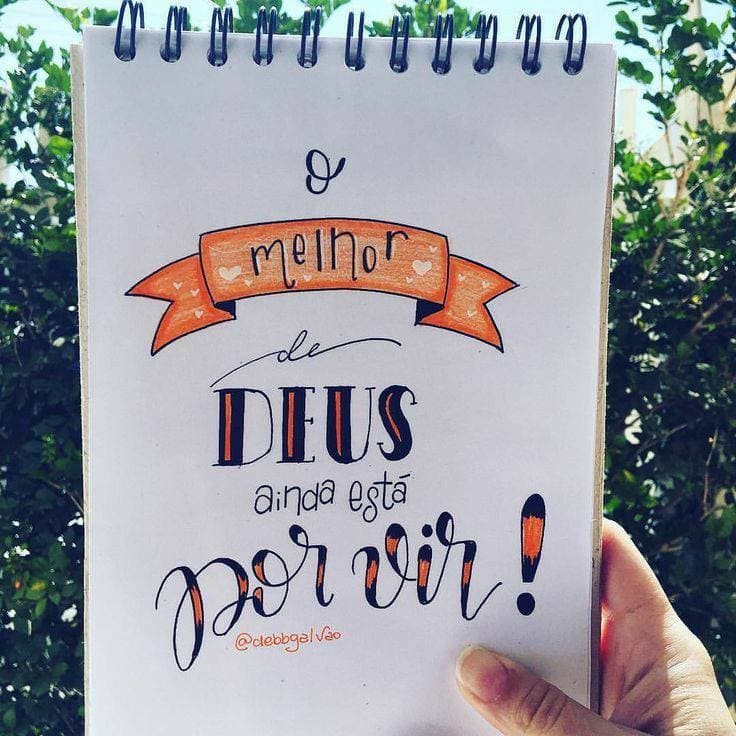 o
melhor
de
DEUS
ainda está
por vir!
@debbgalvao